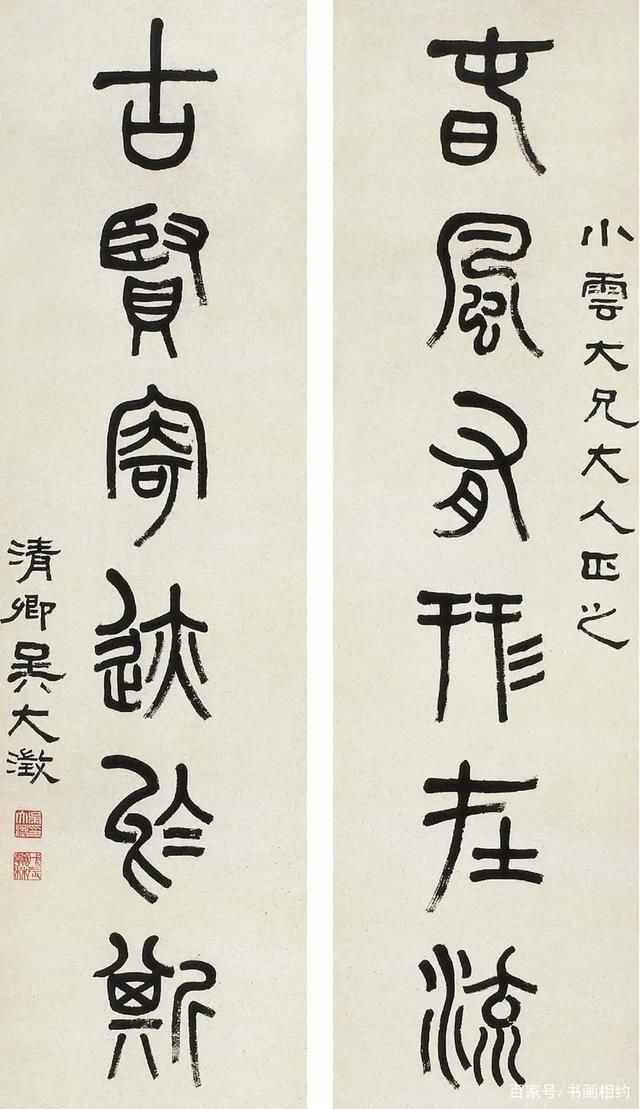 小雲大兄大人正之
春風有形在流
古賢寄迹於斯
清卿吳大澂
百家号/书画相约